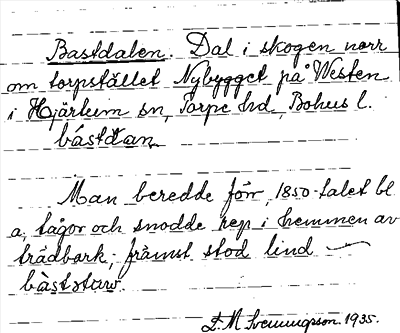 Bastdalen. Dal i skogen norr
om torpstället Nybygget på Westen
i Hjärtum sn, Torpe hd, Bohus l.
båstdan
Man beredde förr, 1850-talet bl
a, tågor och snodde rep i hemmen av
trädbark; främst stod lind
bàststarv.
L. M. Svenungsson. 1935.